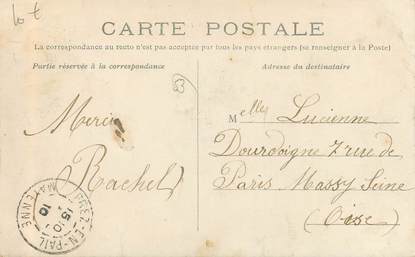 10 €
CARTE POSTALE
La correspondance au recto n'est pas acceptée par tous les pays étrangers (se renseigner à la Poste)
Partie réservée à la correspondance
Adresse du destinataire
53
Merci
Rachel
Melle Lucienne
Dourdoigne 7 rue de
Paris Massy Seine
(Oise)
PREZ-EN-PAIL
MAYENNE
15
10